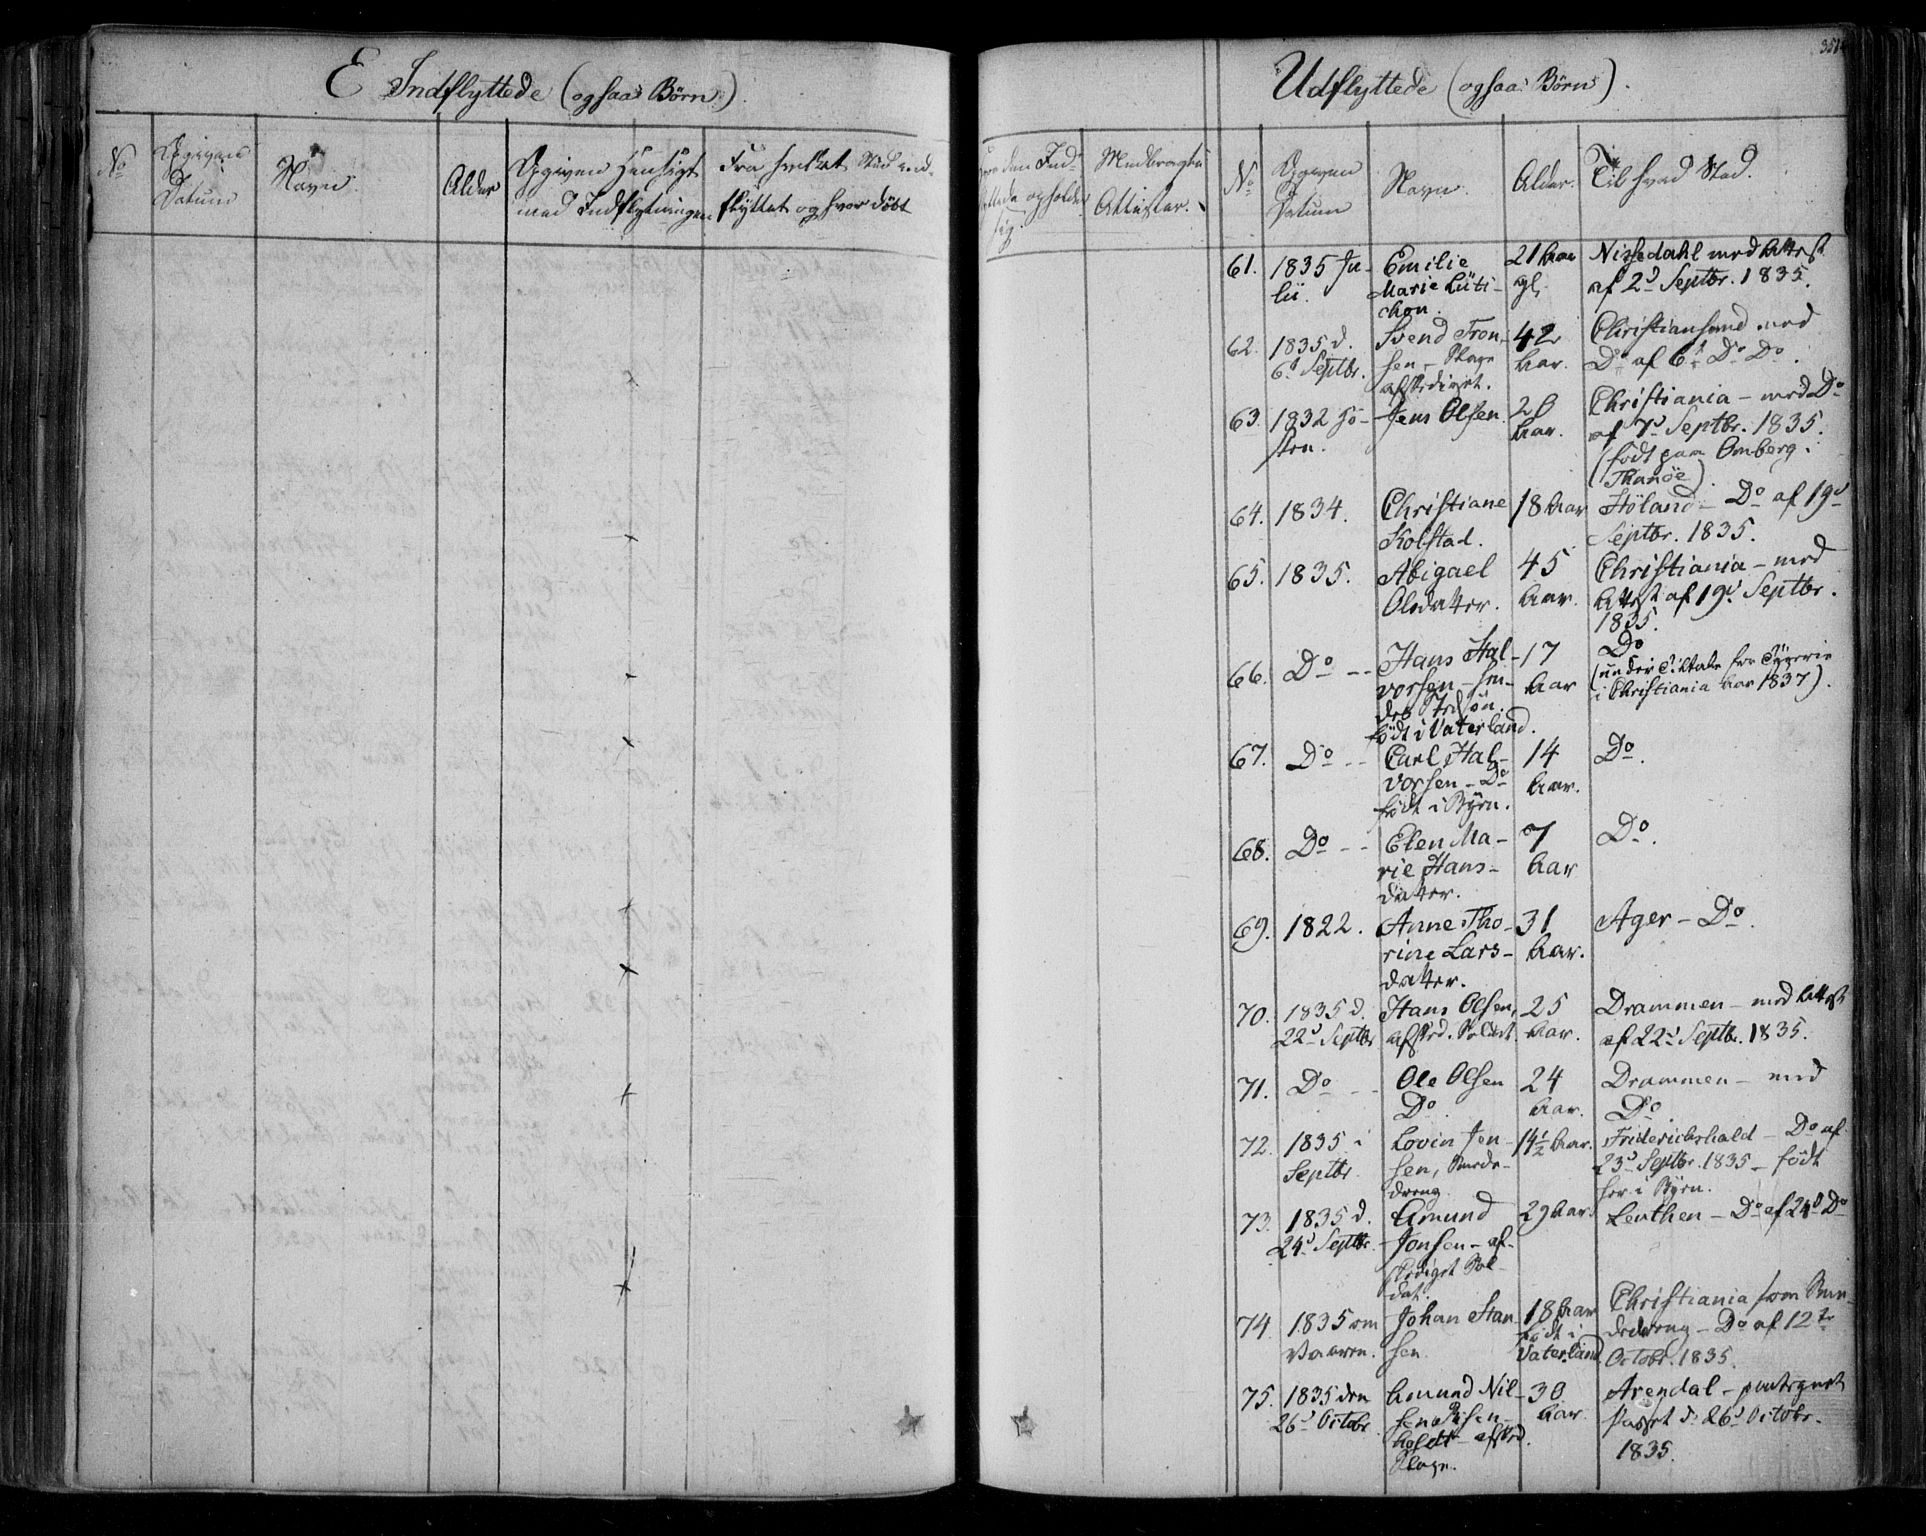 E Indflyttede (ogsaa Børn)
No
Opgiven
Datum
Navn
Alder
Opgiven Hensigt
med Indflytningen
Fra hvilket Sted ind-
flyttet og hvor døbt
Hvor den Ind-
flyttede opholder
sig
Medbragte
Attester.
Udflyttede (ogsaa Børn).
No
Opgiven
Datum
Navn.
Alder.
Til hvad Sted.
61. 1835 Ju-
lii.
Emilie
Marie Lüti-
chon.
21 Aar
gl.
Nissedahl med Attest
af 2d Septbr. 1835.
62. 1835 d.
6d Septbr.
Svend Tron-
sen - Slave
afskediget.
42
Aar.
Christiansand med
Do af 6d Do Do.
63. 1832 Hø-
sten.
Jens Olsen
28
Aar.
Christiania - med Do
af 7d Septbr. 1835.
(født paa Omberg i
Thanøe).
64. 1834.
Christiane
Kolstad.
18 Aar
Høland - Do af 19d
Septbr. 1835.
65. 1835.
Abigael
Olsdatter.
45
Aar.
Christiania - med
Attest af 19d Septbr.
1835.
66. Do --
Hans Hal-
vorsen - hen-
des Stedsøn.
født i Vaterland.
17
Aar
Do
(under Tiltale for Tyverie
i Christiania Aar 1837).
67. Do --
Carl Hal-
vorsen - Do
født i Byen.
14
Aar.
Do.
68. Do --
Elen Ma-
rie Hans-
datter.
7
Aar
Do.
69. 1822.
Anne Tho-
rine Lars-
datter.
31
Aar.
Ager - Do.
70. 1835 d.
22d Septbr
Hans Olsen,
afsked. Soldat.
25
Aar.
Drammen - med Attest
af 22d Septbr. 1835.
71. Do --
Ole Olsen
Do.
24
Aar.
Drammen - med
Do.
72. 1835 i
Septbr
Lovin Jen-
sen, Smede-
dreng
14½ Aar.
Friderichshald - Do af
23d Septbr. 1835 - født
her i Byen.
73. 1835 d.
24d Septbr.
Amund
Jonsen - af-
skediget Sol-
dat.
29 Aar
Leuthen - Do af 24d Do
74. 1835 om
Vaaren.
Johan Han-
sen.
18 Aar
født i
Vaterland
Christiania som
Do af 12te
Octobr. 1835.
75. 1835 den
26d Octobr
Amund Nil-
sen
- afsked.
Slave.
30
Aar.
Arendal - paategnet
Passet d. 26d Octobr.
1835.